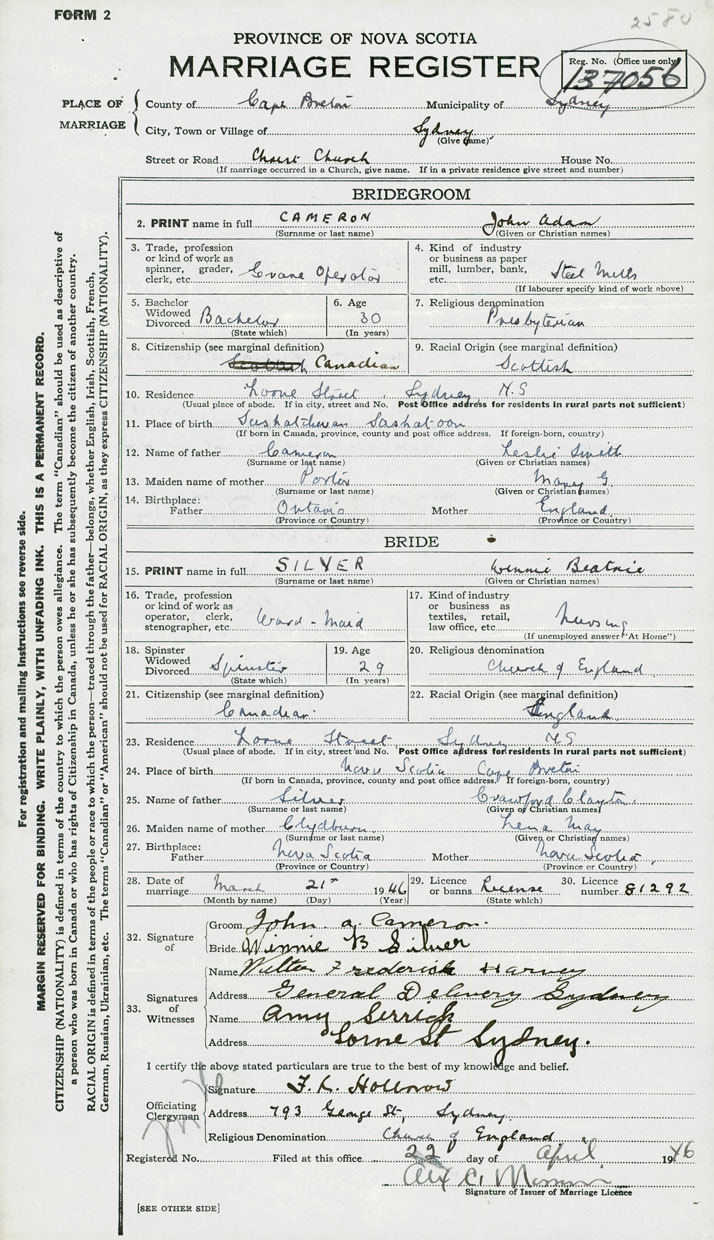 FORM 2
2580
PROVINCE OF NOVA SCOTIA
MARRIAGE REGISTER
Reg. No. (Office use only)
137056
PLACE OF MARRIAGE
County of Cape Breton Municipality of Sydney
City, Town or Village of Sydney
(Give name)
Street or Road Christ Church House No.
(If marriage occurred in a Church, give name. If in a private residence give street and number)
BRIDEGROOM
2. PRINT name in full CAMERON John Adam
(Surname or last name) (Given or Christian names)
3. Trade, profession or kind of work as spinner, grader, clerk, etc. Crane Operator
4. Kind of industry or business as paper mill, lumber, bank, etc. Steel Mills
(If labourer specify kind of work above)
5. Bachelor Widowed Divorced Bachelor
(State which)
6. Age 30
(In years)
7. Religious denomination
Presbyterian
8. Citizenship (see marginal definition)
Scottish Canadian
9. Racial Origin (see marginal definition)
Scottish
10. Residence Lorne Street, Sydney N.S
(Usual place of abode. If in city, street and No. Post Office address for residents in rural parts not sufficient)
11. Place of birth Saskatchewan Saskatoon
(If born in Canada, province, county and post office address. If foreign-born, country)
12. Name of father Cameron Leslie Smith
(Surname or last name) (Given or Christian names)
13. Maiden name of mother Porter Mary G.
(Surname or last name) (Given or Christian names)
14. Birthplace:
Father Ontario Mother England
(Province or Country) (Province or Country)
BRIDE
15. PRINT name in full SILVER Winnie Beatrice
(Surname or last name) (Given or Christian names)
16. Trade, profession or kind of work as operator, clerk, stenographer, etc. Ward-Maid
17. Kind of industry or business as textiles, retail, law office, etc. Nursing
(If unemployed answer "At Home")
18. Spinster Widowed Divorced Spinster
(State which)
19. Age 29
(In years)
20. Religious denomination
Church of England
21. Citizenship (see marginal definition)
Canadian
22. Racial Origin (see marginal definition)
England
23. Residence Lorne Street Sydney N.S
(Usual place of abode. If in city, street and No. Post Office address for residents in rural parts not sufficient)
24. Place of birth Nova Scotia Cape Breton
(If born in Canada, province, county and post office address. If foreign-born, country)
25. Name of father Silver Crawford Clayton
(Surname or last name) (Given or Christian names)
26. Maiden name of mother Clydburn Lena May
(Surname or last name) (Given or Christian names)
27. Birthplace:
Father Nova Scotia Mother Nova Scotia
(Province or Country) (Province or Country)
28. Date of marriage March 21st 1946
(Month by name) (Day) (Year)
29. Licence or banns License
(State which)
30. Licence number 81292
32. Signature of
Groom John A. Cameron
Bride Winnie B Silver
33. Signatures of Witnesses
Name Frederick Harvey
Address General Delivery Sydney
Name Amy Serrick
Address Lorne St Sydney.
I certify the above stated particulars are true to the best of my knowledge and belief.
Officiating Clergyman
Signature F. L.
Address 793 George St, Sydney
Religious Denomination Church of England
Registered No. Filed at this office 22 day of April 1946
Signature of Issuer of Marriage Licence
[SEE OTHER SIDE]
For registration and mailing instructions see reverse side.
MARGIN RESERVED FOR BINDING. WRITE PLAINLY, WITH UNFADING INK. THIS IS A PERMANENT RECORD.
CITIZENSHIP (NATIONALITY) is defined in terms of the country to which the person owes allegiance. The term "Canadian" should be used as descriptive of
a person who was born in Canada or who has rights of Citizenship in Canada, unless he or she has subsequently become the citizen of another country.
RACIAL ORIGIN is defined in terms of the people or race to which the person—traced through the father—belongs, whether English, Irish, Scottish, French,
German, Russian, Ukrainian, etc. The terms "Canadian" or "American" should not be used for RACIAL ORIGIN, as they express CITIZENSHIP (NATIONALITY).